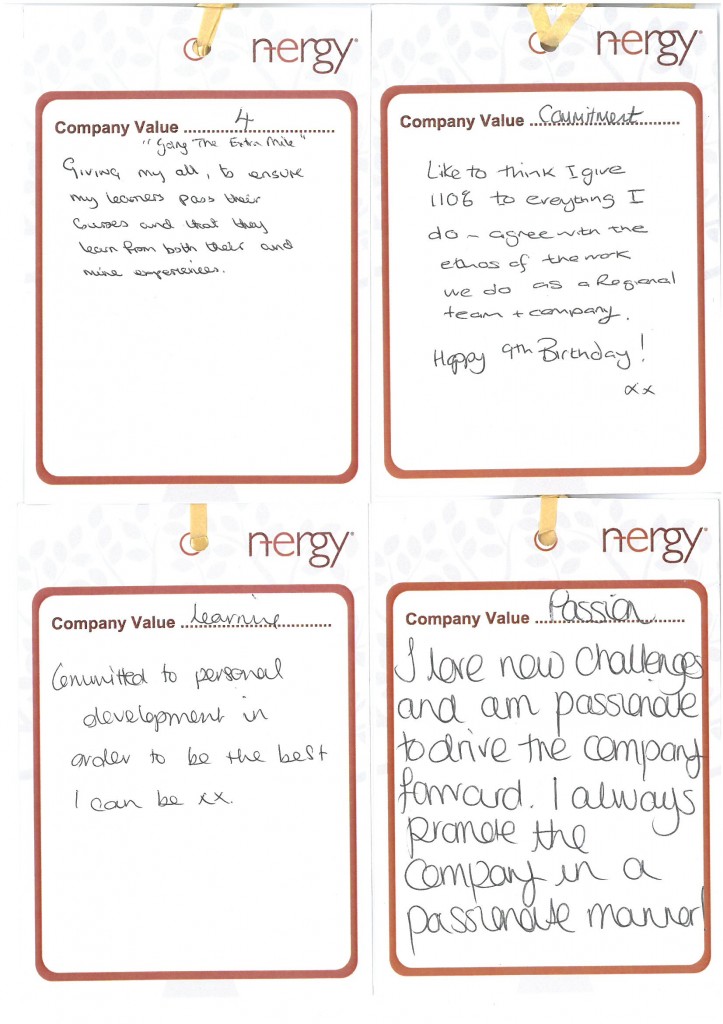 n-ergy
Company Value 4
"Going The Extra Mile"
Giving my all, to ensure
my learners pass their
courses and that they
learn from both their and
mine experiences.
n-ergy
Company Value Commitment
Like to think I give
110% to everything I
do - agree with the
ethos of the work
we do as a Regional
team + company.
Happy 9th Birthday!
xx
n-ergy
Company Value Learning
Committed to personal
development in
order to be the best
I can be xx.
n-ergy
Company Value Passion
I love new challenges
and am passionate
to drive the company
forward. I always
promote the
company in a
passionate manner!